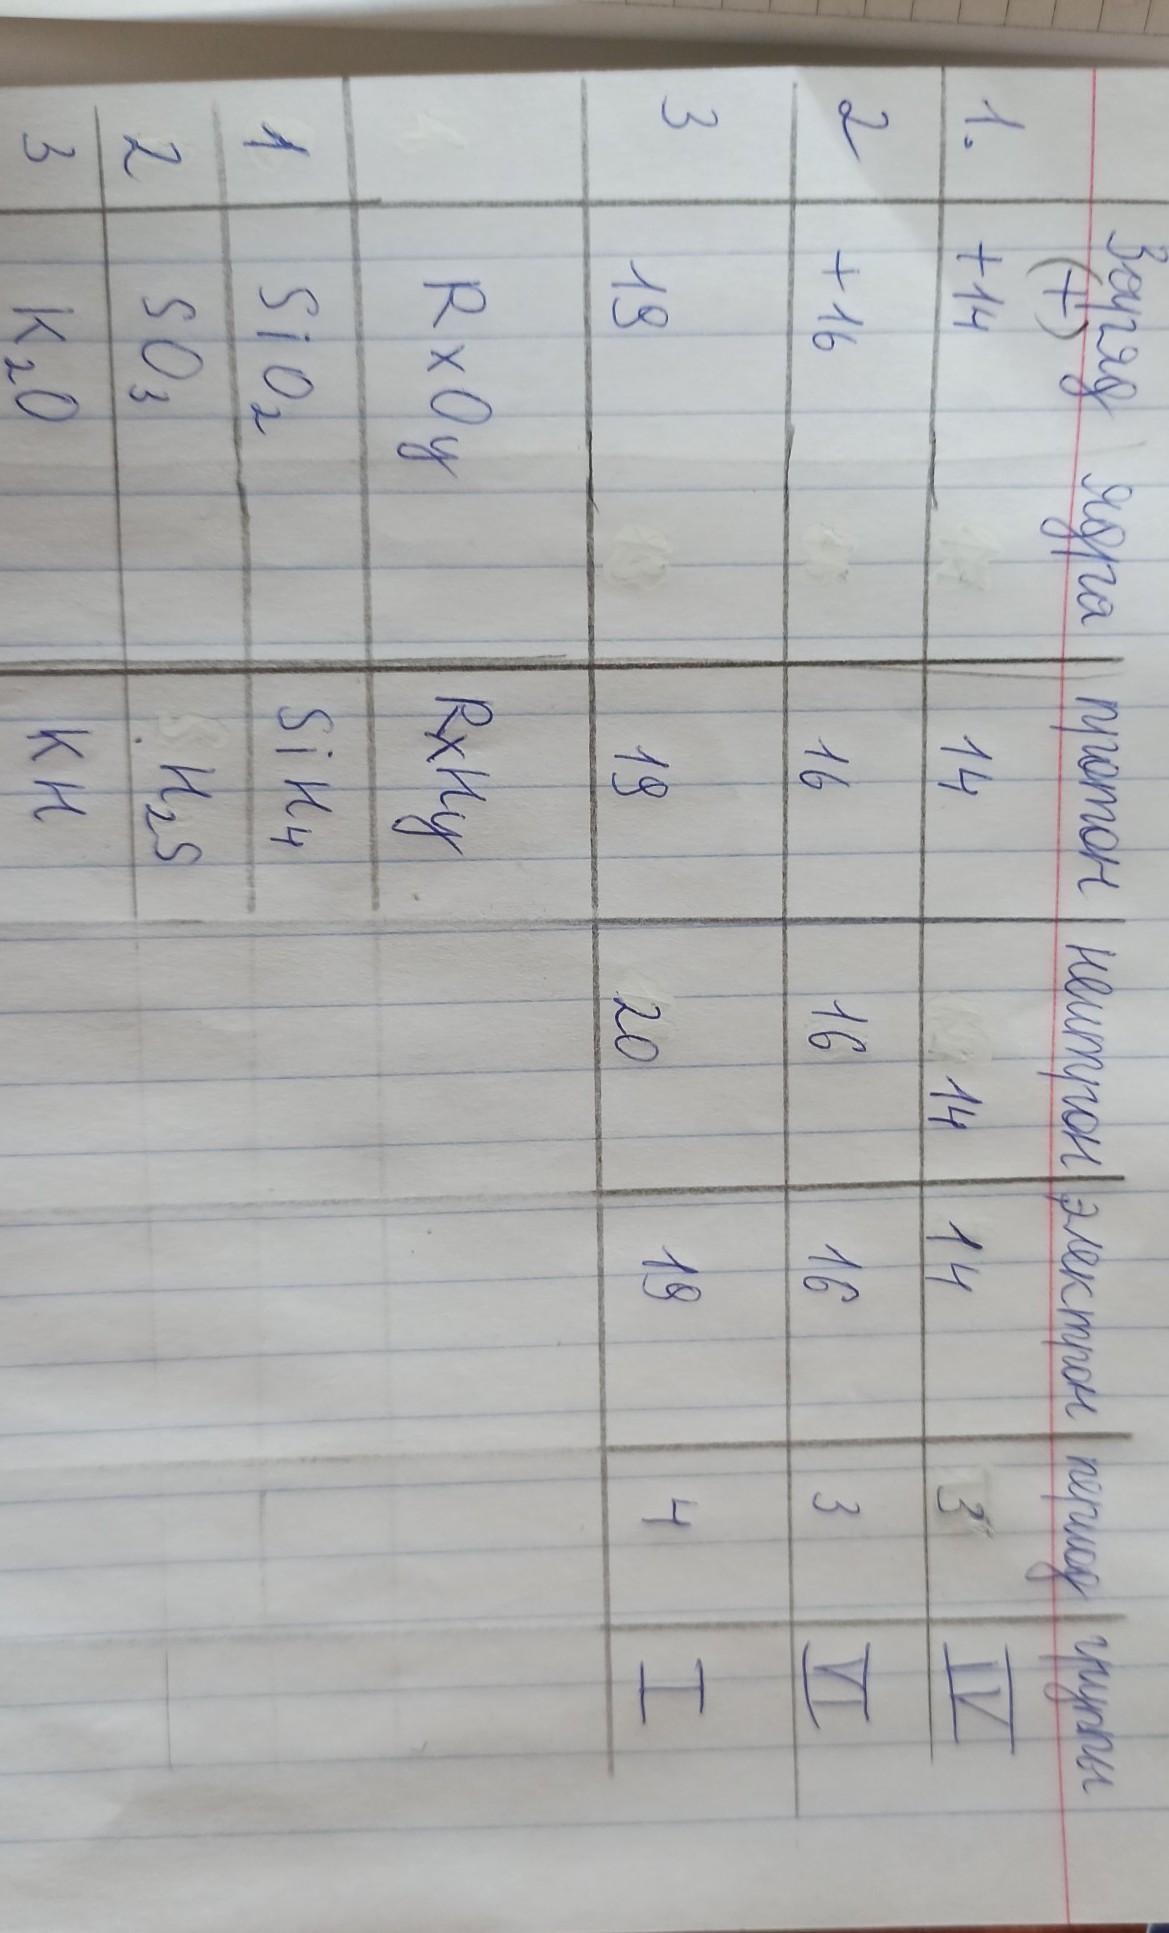 Заряд ядра протон нейтрон электрон период группы
(+)
1. +14 14 14 14 3 IV
2 +16 16 16 16 3 VI
3 19 19 20 19 4 I
RxOy RxHy
1 SiO₂ SiH₄
2 SO₃ H₂S
3 K₂O KH